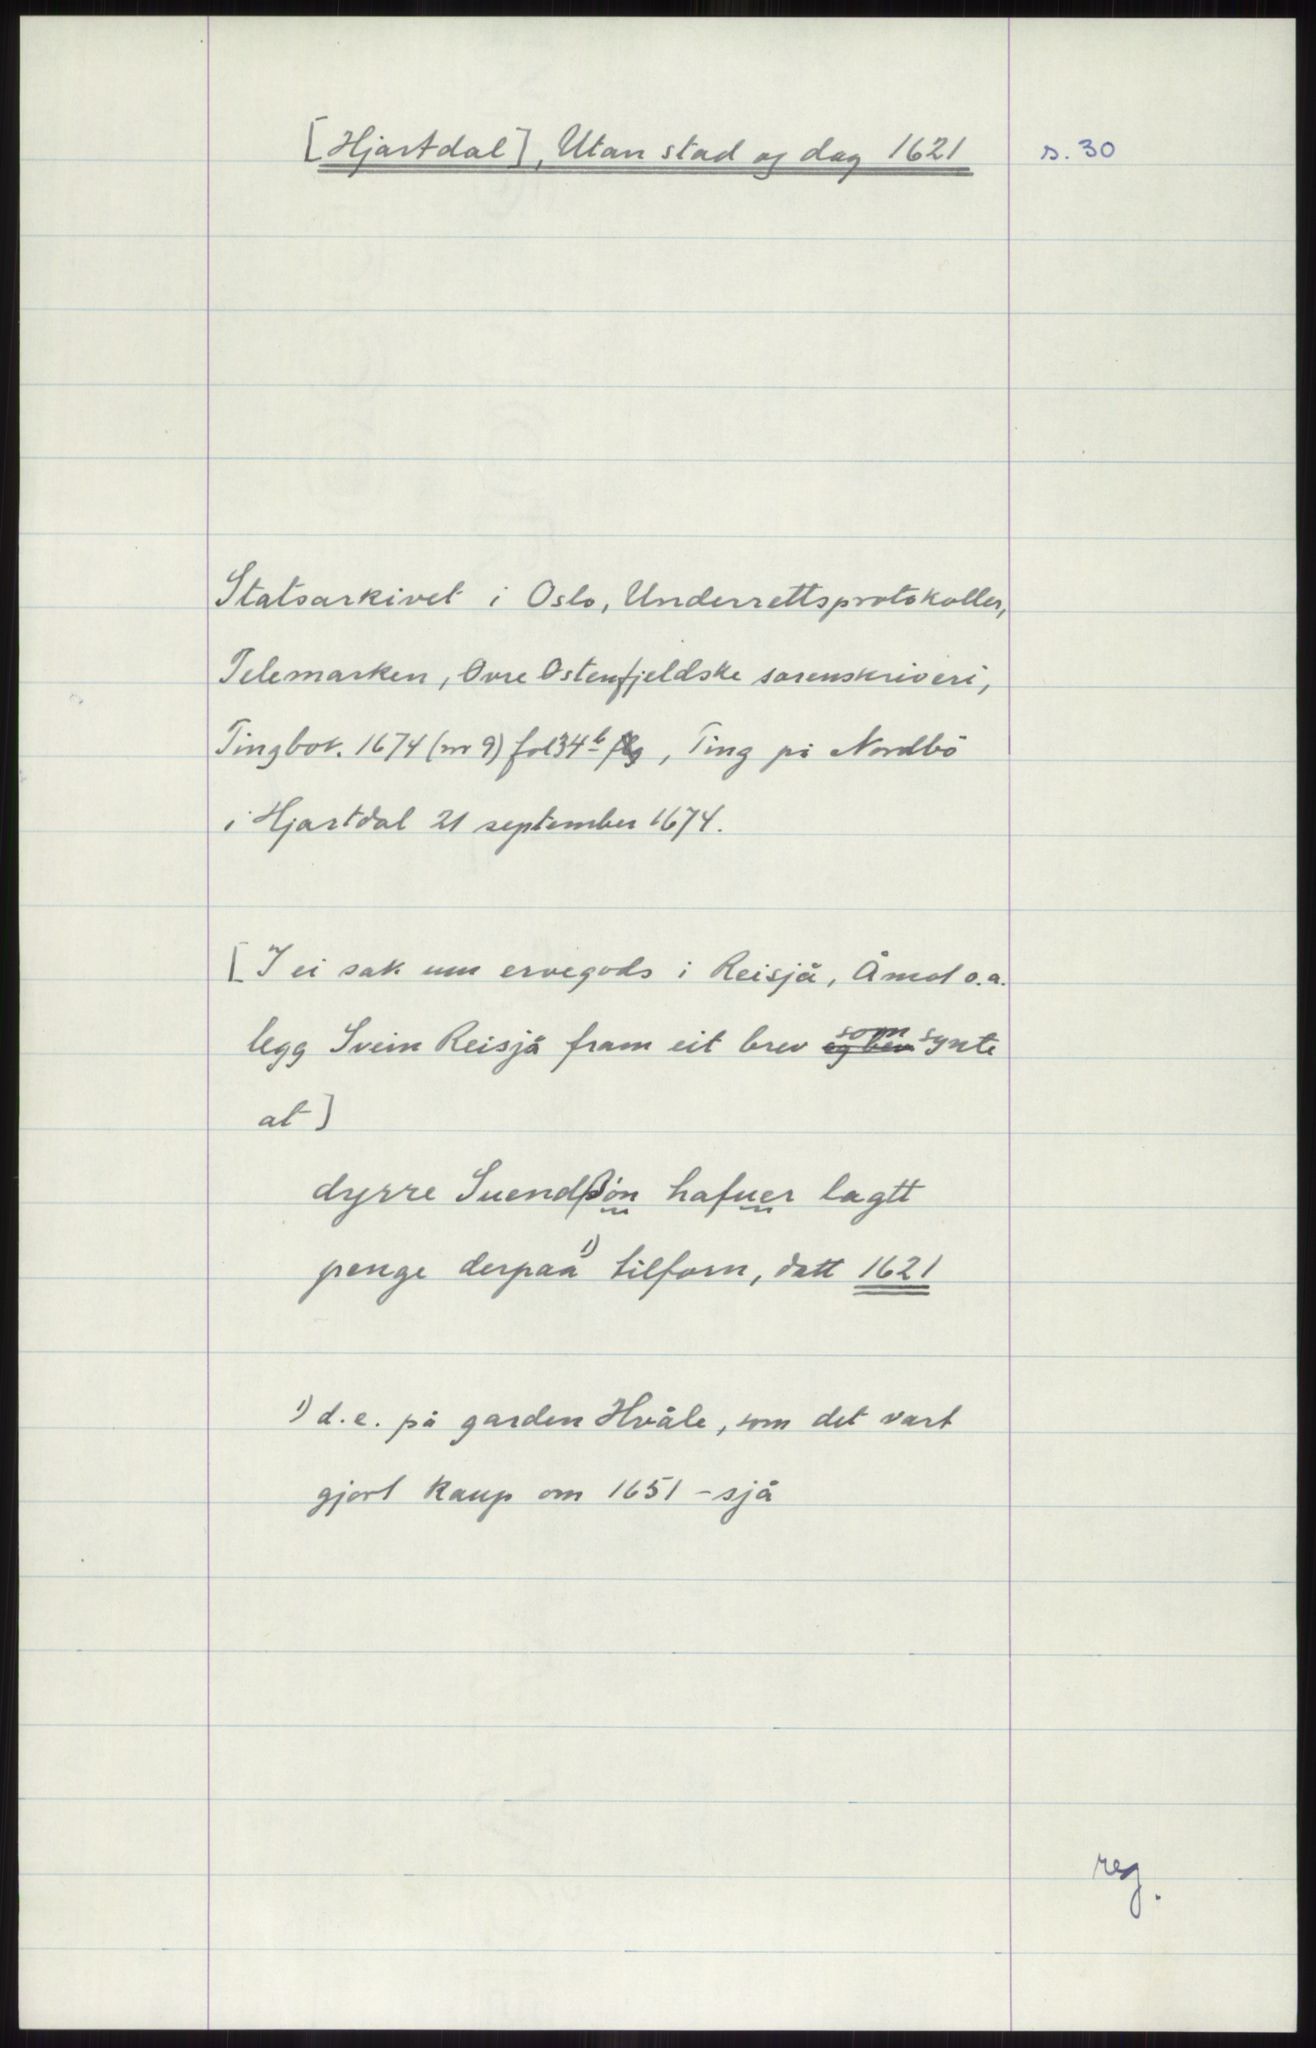 [Hjartdal], Utan stad og dag 1621 s. 30
Statsarkivet i Oslo, Underrettsprotokoller,
Telemarken, Øvre Østenfjeldske sorenskriveri,
Tingbok. 1674 (nr 9) fol 34 b, Ting på Nordbö
i Hjartdal 21 september 1674.
[I ei sak um ervegods i Reisjå, Åmot o.a.
legg Svein Reisjå fram eit brev som synte
at]
dyrre Suendßön hafuer lagtt
penge derpaa 1) tilforn, datt 1621
1) d.e. på garden Hvåle, som det vart
gjort kaup om 1651 - sjå
reg.